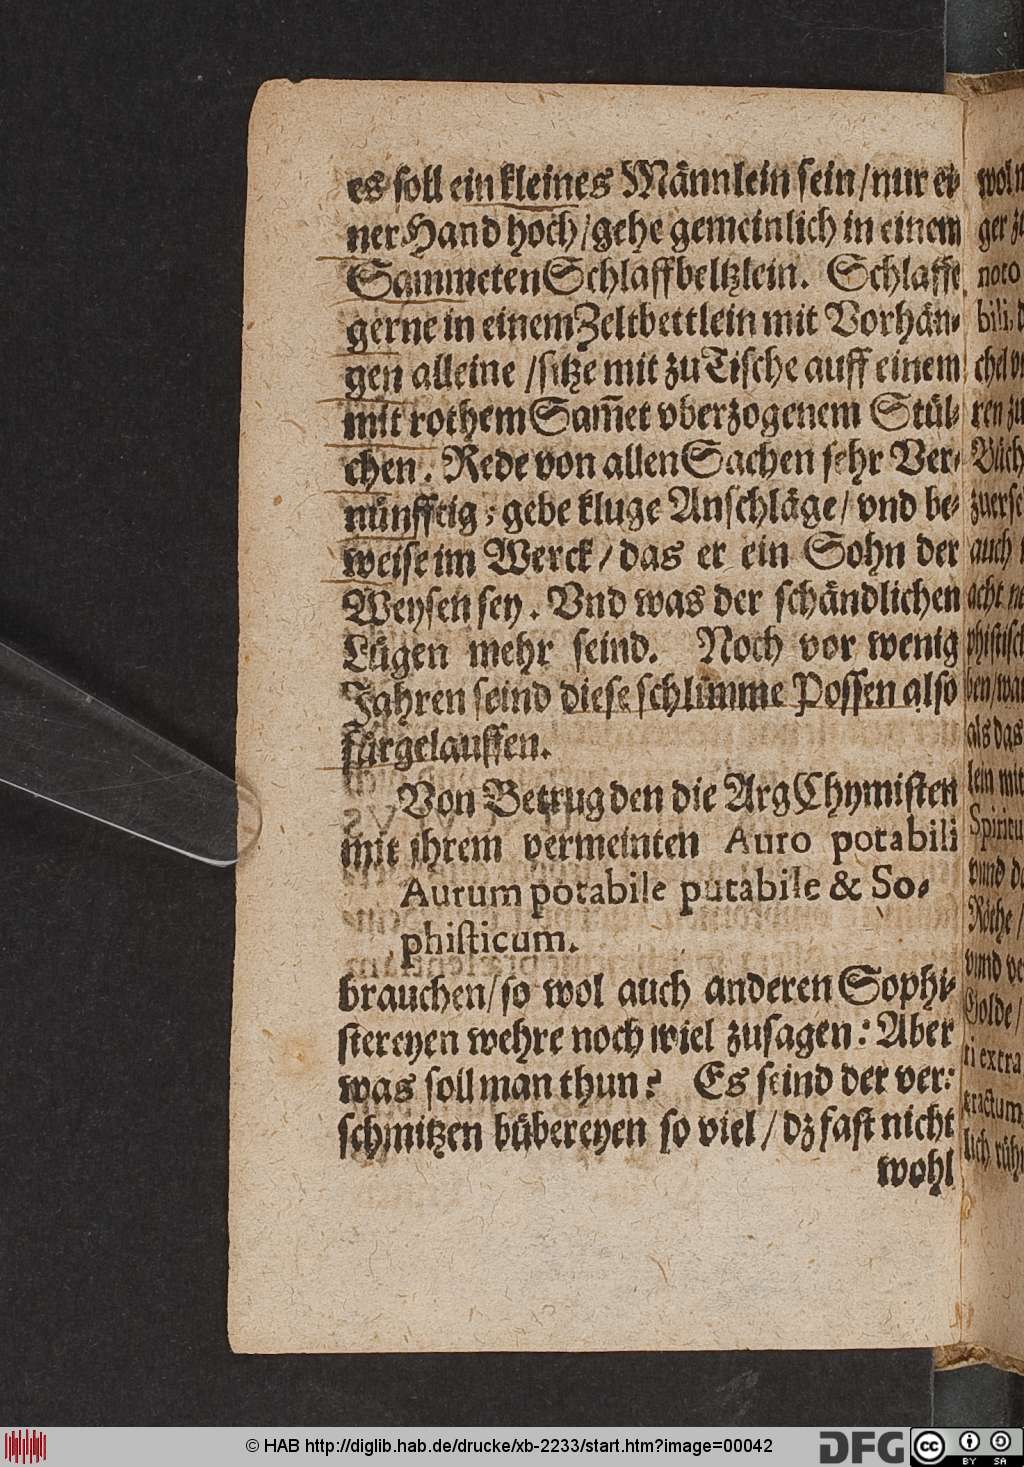 es soll ein kleines Männlein sein/nur ei-
ner Hand hoch/gehe gemeinlich in einem
Sammeten Schlaffbeltzlein. Schlaffe
gerne in einem Zeltbettlein mit Vorhän-
gen alleine /sitze mit zu Tische auff einem
mit rothem Sam̃et vberzogenem Stül-
chen. Rede von allen Sachen sehr Ver-
nünfftig; gebe kluge Anschläge/ vnd be-
weise im Werck/ das er ein Sohn der
Weysen sey. Vnd was der schändlichen
Lügen mehr seind. Noch vor wenig
Jahren seind diese schlimme Possen also
fürgelauffen.
Von Betrug den die ArgChymisten
mit ihrem vermeinten Auro potabili
Aurum potabile putabile & So-
phisticum.
brauchen/so wol auch anderen Sophi-
stereyen wehre noch wiel zusagen: Aber
was soll man thun? Es seind der ver-
schmitzen bübereyen so viel / dz fast nicht
wohl
wol
ger
noto
bili,
ren
auch
acht
als das
lein mit
Spiritu
vnnd
Röthe /
vnnd
Golde/
ti extra
lich
© HAB http://diglib.hab.de/drucke/xb-2233/start.htm?image=00042
DFG
cc
BY SA